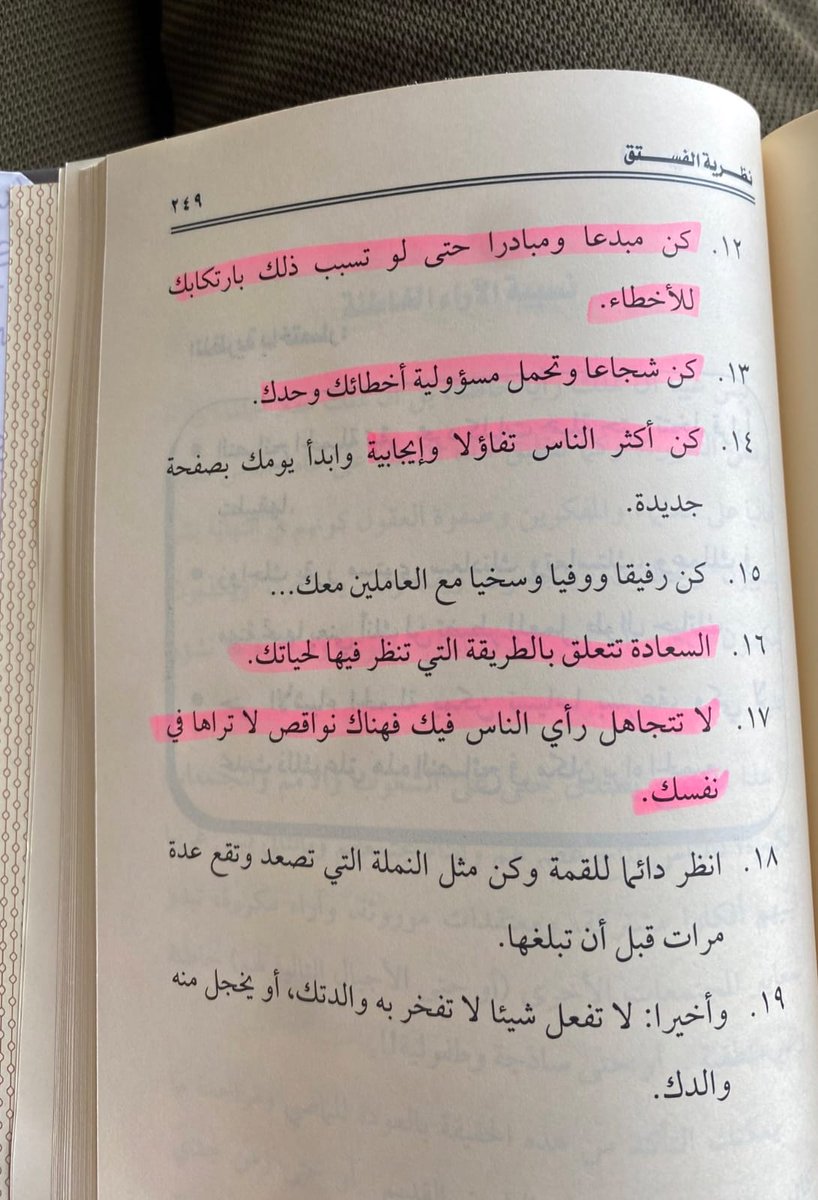 نظرية الفستق
٢٤٩
١٢. كن مبدعا ومبادرا حتى لو تسبب ذلك بارتكابك
للأخطاء.
١٣. كن شجاعا وتحمل مسؤولية أخطائك وحدك.
١٤. كن أكثر الناس تفاؤلا وإيجابية وابدأ يومك بصفحة
جديدة.
١٥. كن رفيقا ووفيا وسخيا مع العاملين معك...
١٦. السعادة تتعلق بالطريقة التي تنظر فيها لحياتك.
١٧. لا تتجاهل رأي الناس فيك فهناك نواقص لا تراها في
نفسك.
١٨. انظر دائما للقمة وكن مثل النملة التي تصعد وتقع عدة
مرات قبل أن تبلغها.
١٩. وأخيرا: لا تفعل شيئا لا تفخر به والدتك، أو يخجل منه
والدك.